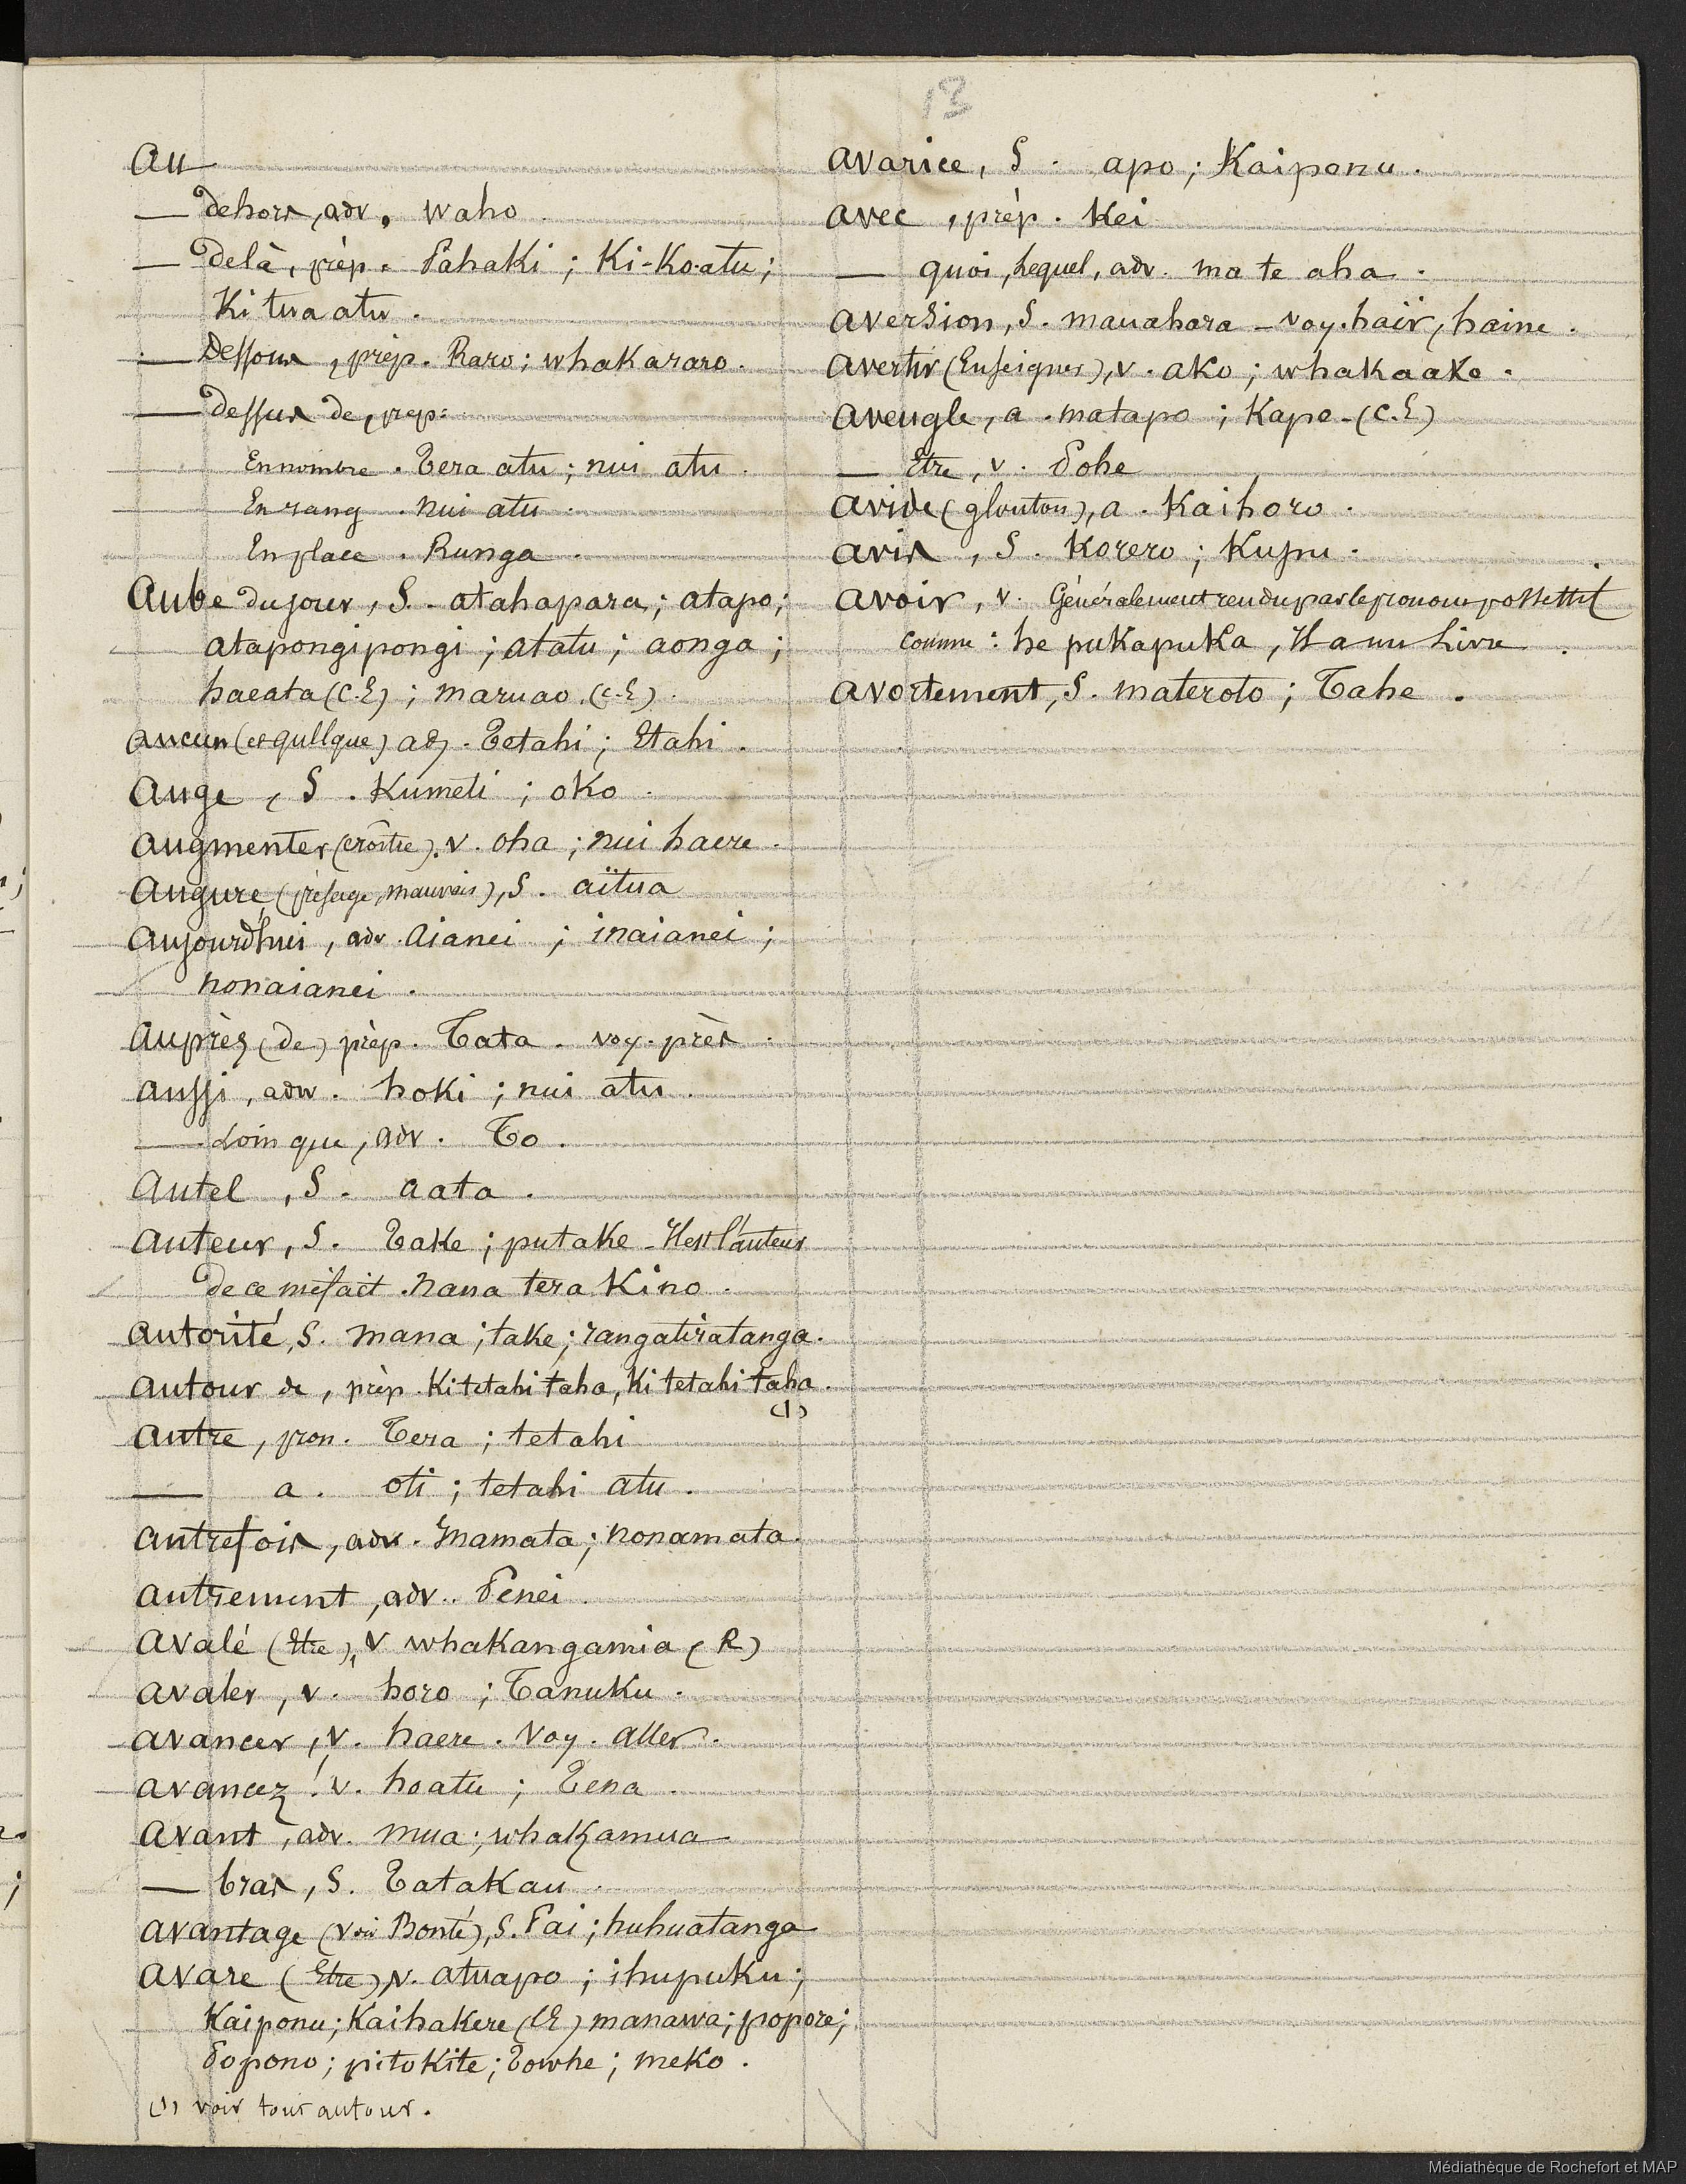 13
Au
— dehors, adv. waho
— delà, prép. Pahaki ; Ki-Ko-atu ;
Ki tua atu .
— Dessous, prép. Raro ; whakararo .
— dessus de, prep.
En nombre . Tera atu ; nui atu .
En rang . nui atu .
En place . Runga .
Aube du jour, S. atahapara ; atapo ;
atapongipongi ; atatu ; aonga ;
haeata (C.E) ; maruao (C.E) .
aucun (et qullque) adj. Tetahi ; Etahi .
Auge, S. Kumeti ; oko .
Augmenter (croître), v. oha ; nui haere .
Augure, (présage, mauvais), S. aïtua
Aujourd'hui, adv. Aianei ; inaianei ;
nonaianei .
Auprès (de) prép. Tata . voy. près .
aussi, adv. hoki ; nui atu .
— Loin que, adv. To .
Autel, S. aata .
Auteur, S. Take ; putake - Il est l'auteur
de ce méfait . Nana tera Kino .
Autorité, S. mana ; take ; rangatiratanga .
autour de, prép. Ki tetahi taha, Ki tetahi taha .
(1)
Autre, pron. Tera ; tetahi
— a. oti ; tetahi atu .
autrefois, adv. Mamata ; nonamata .
autrement, adv. Penei .
Avalé (Etre), v whakangamia (R)
avaler, v. horo ; Tanuku .
avancer, v. haere . Voy. aller .
avancez ! v. hoatu ; Tena .
Avant, adv. mua ; whakamua
— bras, S. Tatakau .
avantage (voir Bonté), S. Pai ; huhuatanga
Avare (Etre), v. atuapo ; ihupuku ;
Kaiponu ; Kaihakere (CE) manawa ; popore ;
Popono ; pitokite ; Towhe ; meko .
(1) voir tout autour .
avarice, S. apo ; Kaiponu .
avec, prép. Kei
— quoi, Lequel, adv. ma te aha .
aversion, S. mauahara - voy. haïr, haine .
avertir (Enseigner), v. ako ; whakaako .
aveugle, a. matapo ; Kapo - (C.E)
— Etre, v. Pohe
avide (glouton), a. Kaihoro .
avis, S. Korero ; Kupu .
avoir, v. Généralement rendu par le pronom possessif
comme : he pukapuka, Il a un Livre .
avortement, S. materoto ; Tahe .
Médiathèque de Rochefort et MAP